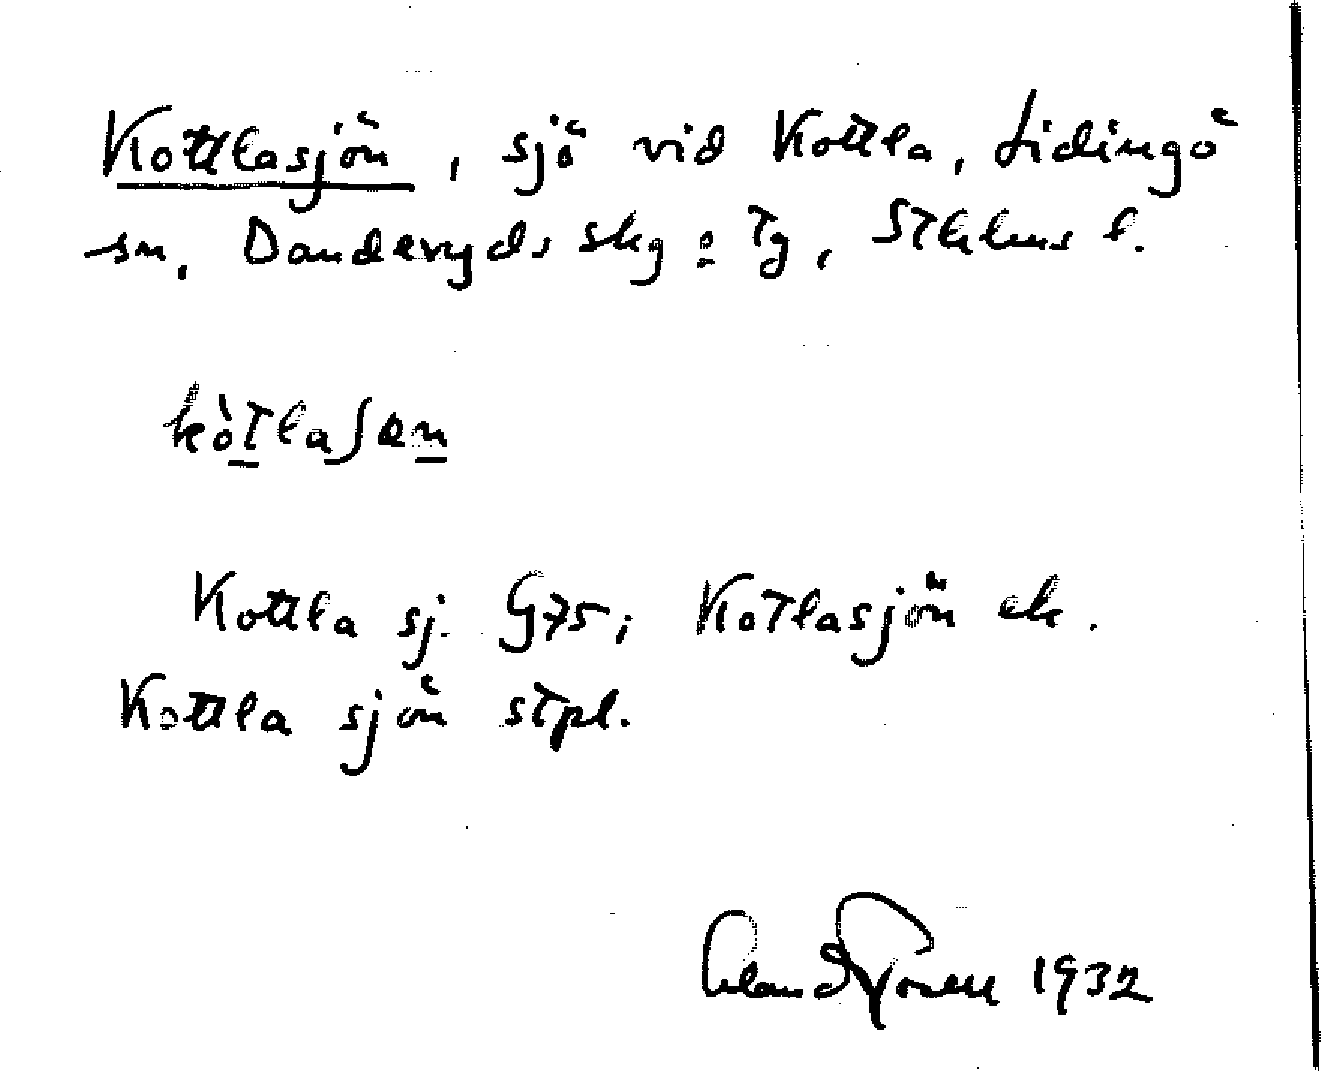 Kottlasjön, sjö vid Kottla, Lidingö
sn, Danderyds skg o Tg, Sthlms l.
kòtlaʃən
Kottla sj. G75; Kotlasjön ek.
Kottla sjön stpl.
1932